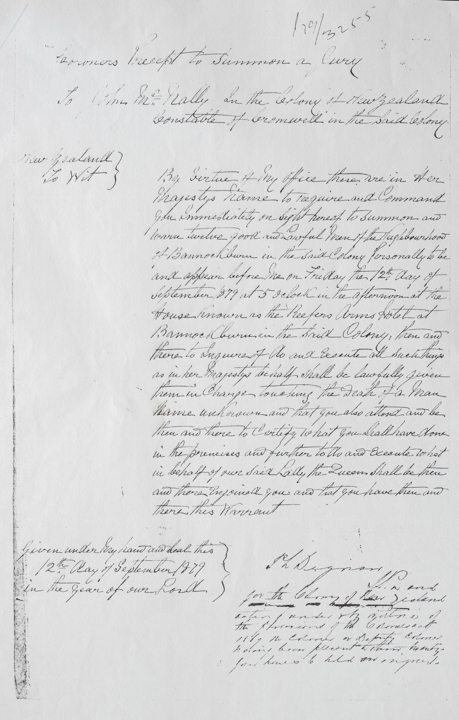 179/3255
Coroners Precept to Summon a Jury
To John McNally In the Colony of New Zealand
Constable of Cromwell in the Said Colony
New Zealand
To Wit
By Virtue of My Office these are in Her
Majestys Name to require and Command
You Immediately on Sight hereof to Summon and
warn twelve good and Lawful Men of the Neighbourhood
of Bannockburn in the said Colony Personally to be
and appear before me on Friday the 12th day of
September 1879 at 5 oclock in the afternoon at the
House known as the Reefers Arms Hotel at
Bannockburn in the Said Colony, then and
there to Inquire of do and Execute all Such things
as in her Majestys behalf shall be lawfully given
them in Charge touching the Death of a Man
Name unknown and that you also attend and be
then and there to Certify what you shall have done
in the premises and further to do and Execute what
in behalf of our Said Lady the Queen Shall be then
and there Enjoined You and that you have then and
there this Warrant
Given under My hand and Seal this
12th day of September 1879
in the Year of our Lord
J.P. in and
for the Colony of New Zealand
acting under by virtue of
the provisions of the Coroners Act
1867 no Coroner or Deputy Coroner
having been present within twenty
four hours to hold an inquest